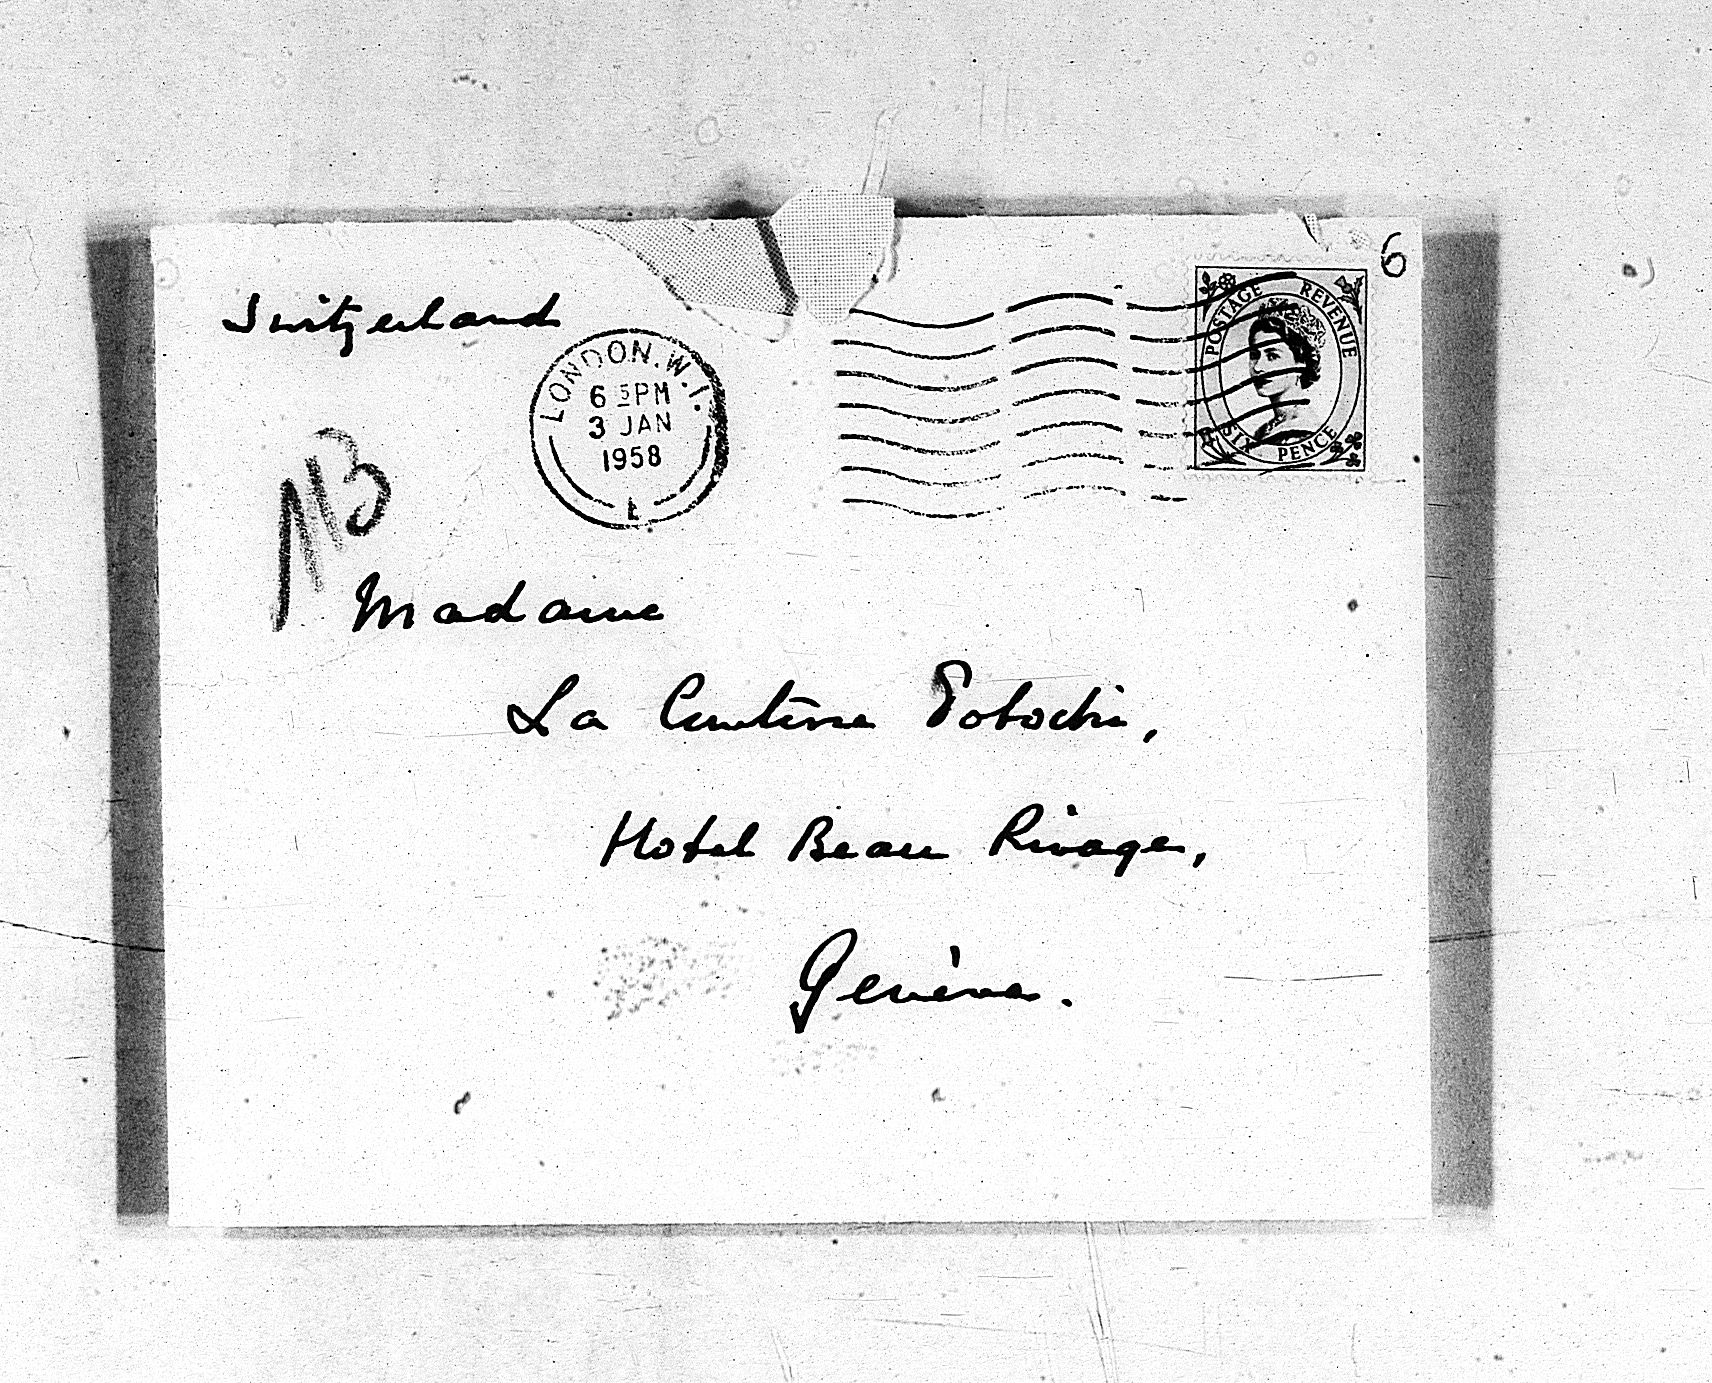 6
Switzerland
POSTAGE REVENUE
SIX PENCE
LONDON. W.1.
6 15 PM
3 JAN
1958
113
Madame
La Comtesse Potocki,
Hotel Beau Rivage,
Genève.